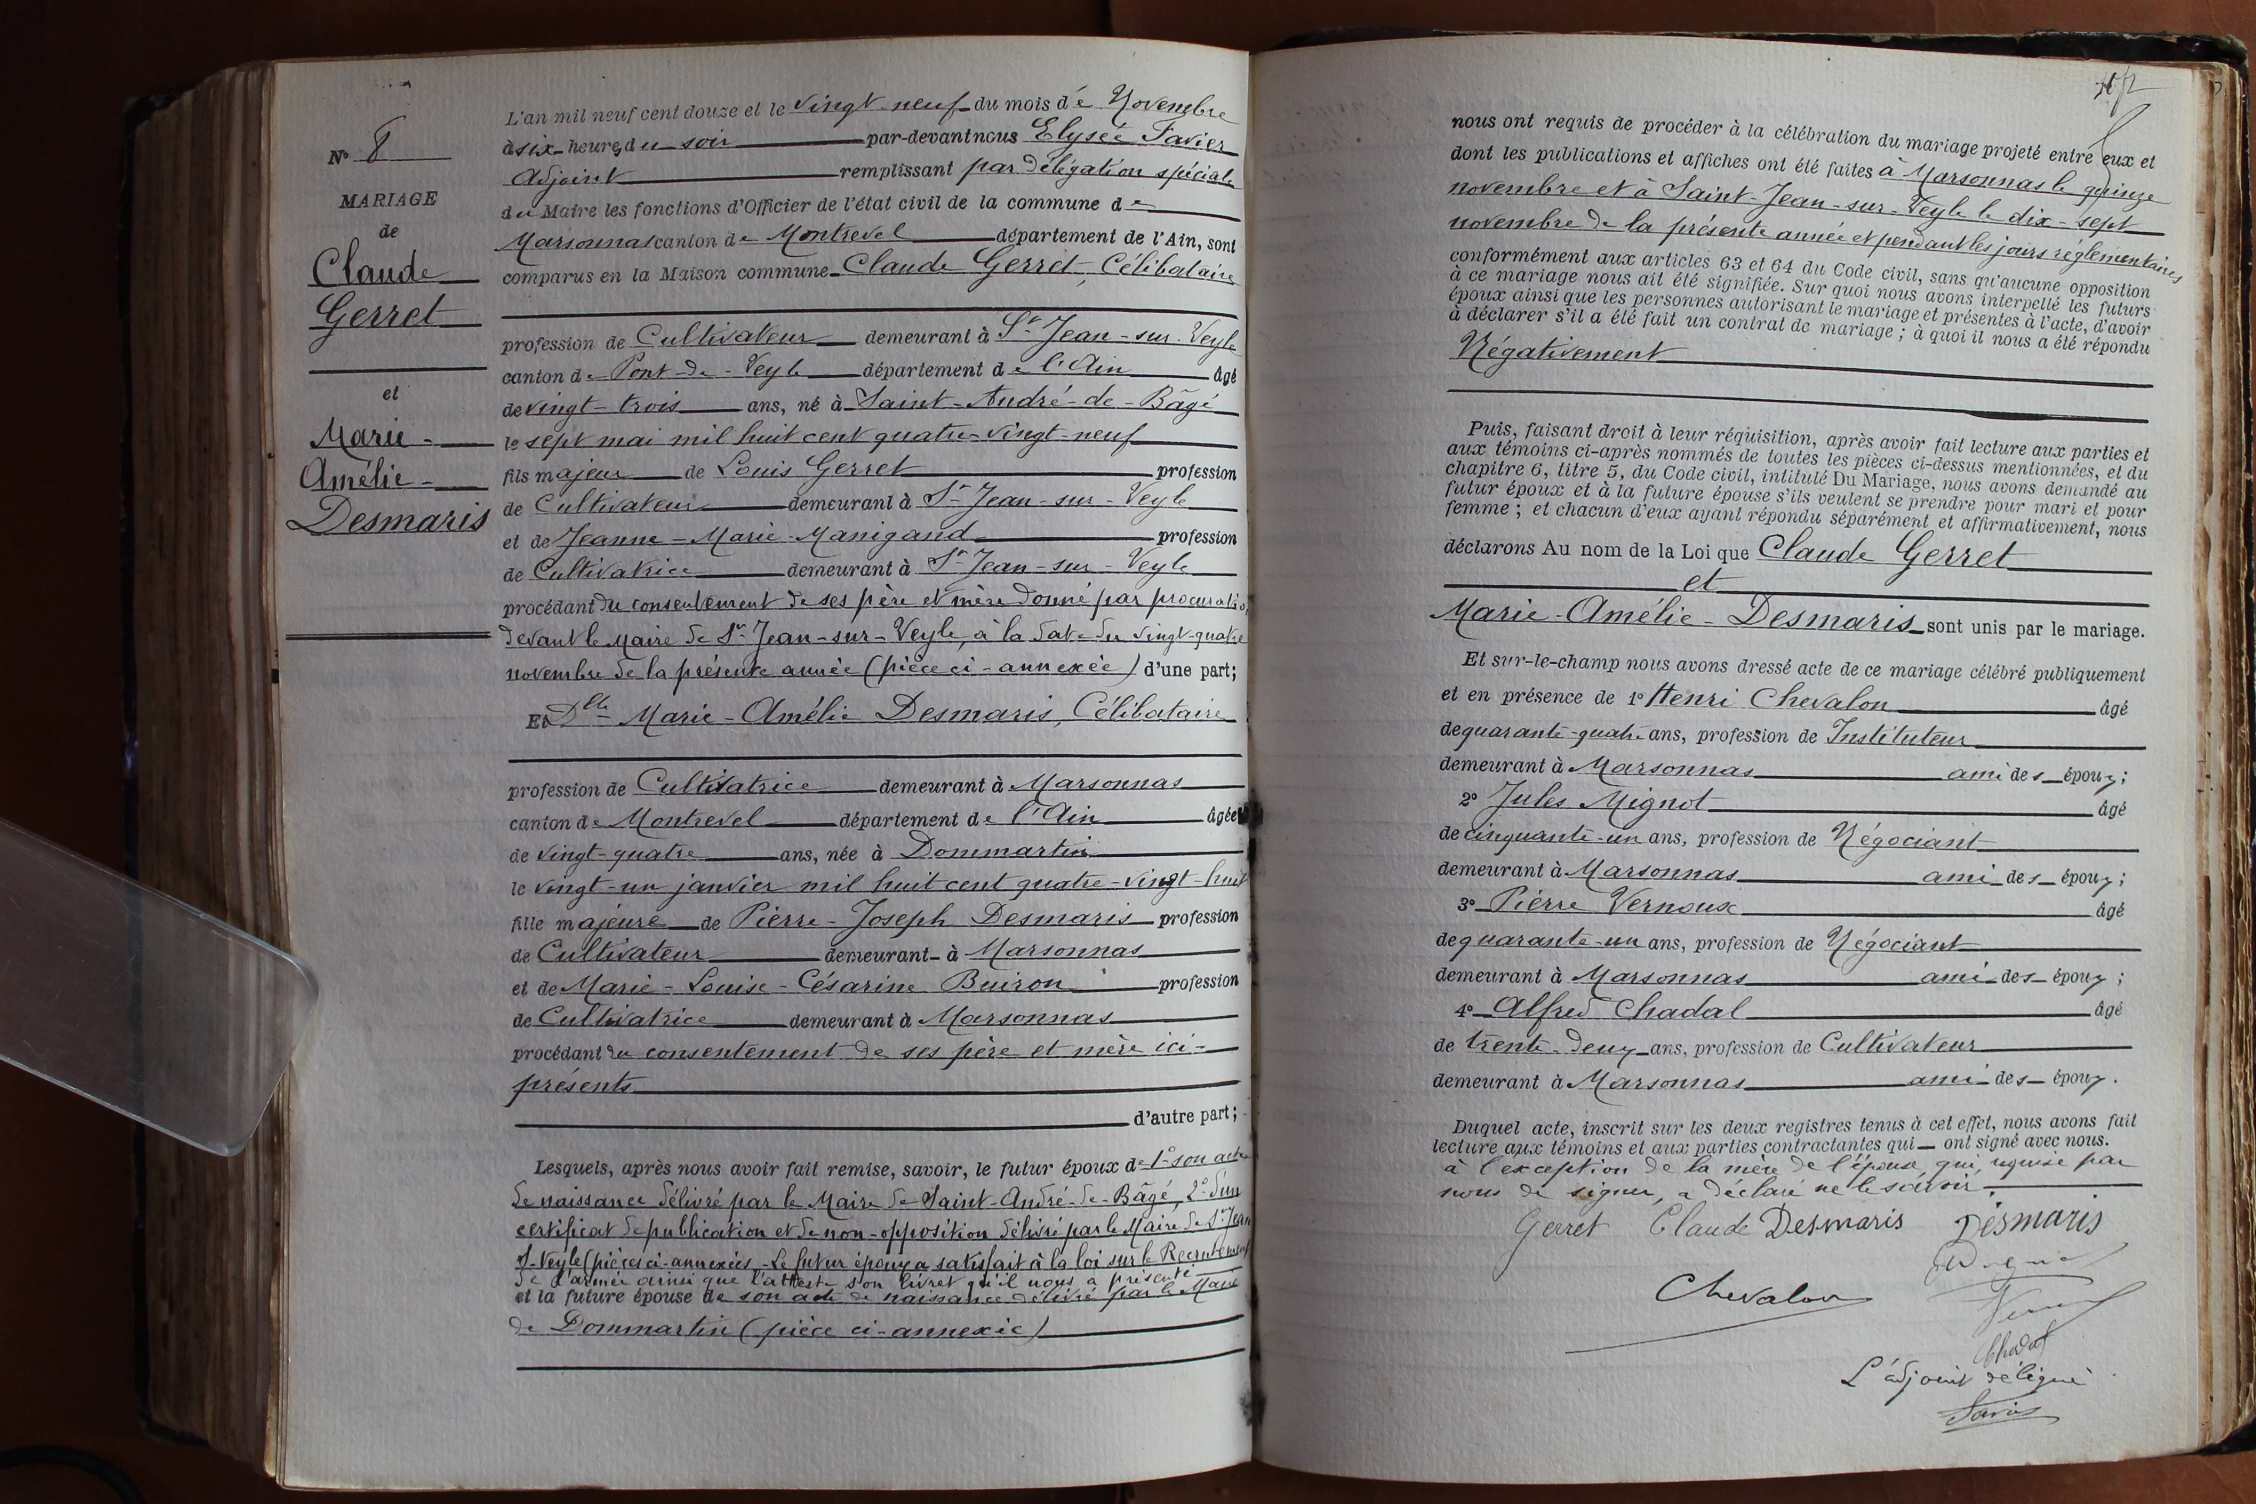 N° 8
MARIAGE
de
Claude
Gerret
et
Marie-
Amélie-
Desmaris
L'an mil neuf cent douze et le vingt-neuf du mois de Novembre
à six heures du soir par-devant nous Elysée Favier
Adjoint remplissant par délégation spéciale
du Maire les fonctions d'Officier de l'état civil de la commune de
Marsonnas canton de Montrevel département de l'Ain, sont
comparus en la Maison commune Claude Gerret, Célibataire
profession de Cultivateur demeurant à St Jean-sur-Veyle
canton de Pont-de-Veyle département de l'Ain âgé
de vingt-trois ans, né à Saint-André-de-Bâgé
le sept mai mil huit cent quatre-vingt-neuf
fils majeur de Louis Gerret profession
de Cultivateur demeurant à St Jean-sur-Veyle
et de Jeanne-Marie Manigand profession
de Cultivatrice demeurant à St Jean-sur-Veyle
procédant du consentement de ses père et mère donné par procuration
devant le Maire de St Jean-sur-Veyle, à la date du vingt-quatre
novembre de la présente année (pièce ci-annexée) d'une part;
Et Dlle Marie-Amélie Desmaris, Célibataire
profession de Cultivatrice demeurant à Marsonnas
canton de Montrevel département de l'Ain âgée
de vingt-quatre ans, née à Dommartin
le vingt-un janvier mil huit cent quatre-vingt-huit
fille majeure de Pierre-Joseph Desmaris profession
de Cultivateur demeurant à Marsonnas
et de Marie-Louise-Césarine Buiron profession
de Cultivatrice demeurant à Marsonnas
procédant du consentement de ses père et mère ici-
présents
d'autre part;
Lesquels, après nous avoir fait remise, savoir, le futur époux de 1° son acte
de naissance délivré par le Maire de Saint-André-de-Bâgé, 2° d'un
certificat de publication et de non-opposition délivré par le Maire de St Jean
s-Veyle (pièces ci-annexées - Le futur époux a satisfait à la loi sur le Recrutement
de l'armée ainsi que l'atteste son livret qu'il nous a présenté
et la future épouse de son acte de naissance délivré par le Maire
de Dommartin (pièce ci-annexée)
nous ont requis de procéder à la célébration du mariage projeté entre eux et
dont les publications et affiches ont été faites à Marsonnas le quinze
novembre et à Saint-Jean-sur-Veyle le dix-sept
novembre de la présente année et pendant les jours réglementaires
conformément aux articles 63 et 64 du Code civil, sans qu'aucune opposition
à ce mariage nous ait été signifiée. Sur quoi nous avons interpellé les futurs
époux ainsi que les personnes autorisant le mariage et présentes à l'acte, d'avoir
à déclarer s'il a été fait un contrat de mariage; à quoi il nous a été répondu
Négativement
Puis, faisant droit à leur réquisition, après avoir fait lecture aux parties et
aux témoins ci-après nommés de toutes les pièces ci-dessus mentionnées, et du
chapitre 6, titre 5, du Code civil, intitulé Du Mariage, nous avons demandé au
futur époux et à la future épouse s'ils veulent se prendre pour mari et pour
femme; et chacun d'eux ayant répondu séparément et affirmativement, nous
déclarons Au nom de la Loi que Claude Gerret
et
Marie-Amélie-Desmaris sont unis par le mariage.
Et sur-le-champ nous avons dressé acte de ce mariage célébré publiquement
et en présence de 1° Henri Chevalon âgé
de quarante-quatre ans, profession de Instituteur
demeurant à Marsonnas ami des époux;
2° Jules Mignot âgé
de cinquante-un ans, profession de Négociant
demeurant à Marsonnas ami des époux;
3° Pierre Vernoux âgé
de quarante-un ans, profession de Négociant
demeurant à Marsonnas ami des époux;
4° Alfred Chadal âgé
de trente-deux ans, profession de Cultivateur
demeurant à Marsonnas ami des époux.
Duquel acte, inscrit sur les deux registres tenus à cet effet, nous avons fait
lecture aux témoins et aux parties contractantes qui ont signé avec nous.
à l'exception de la mère de l'épouse, qui, requise par
nous de signer, a déclaré ne le savoir.
Gerret Claude Desmaris Desmaris
Chevalon
Chadal
L'adjoint délégué
Favier